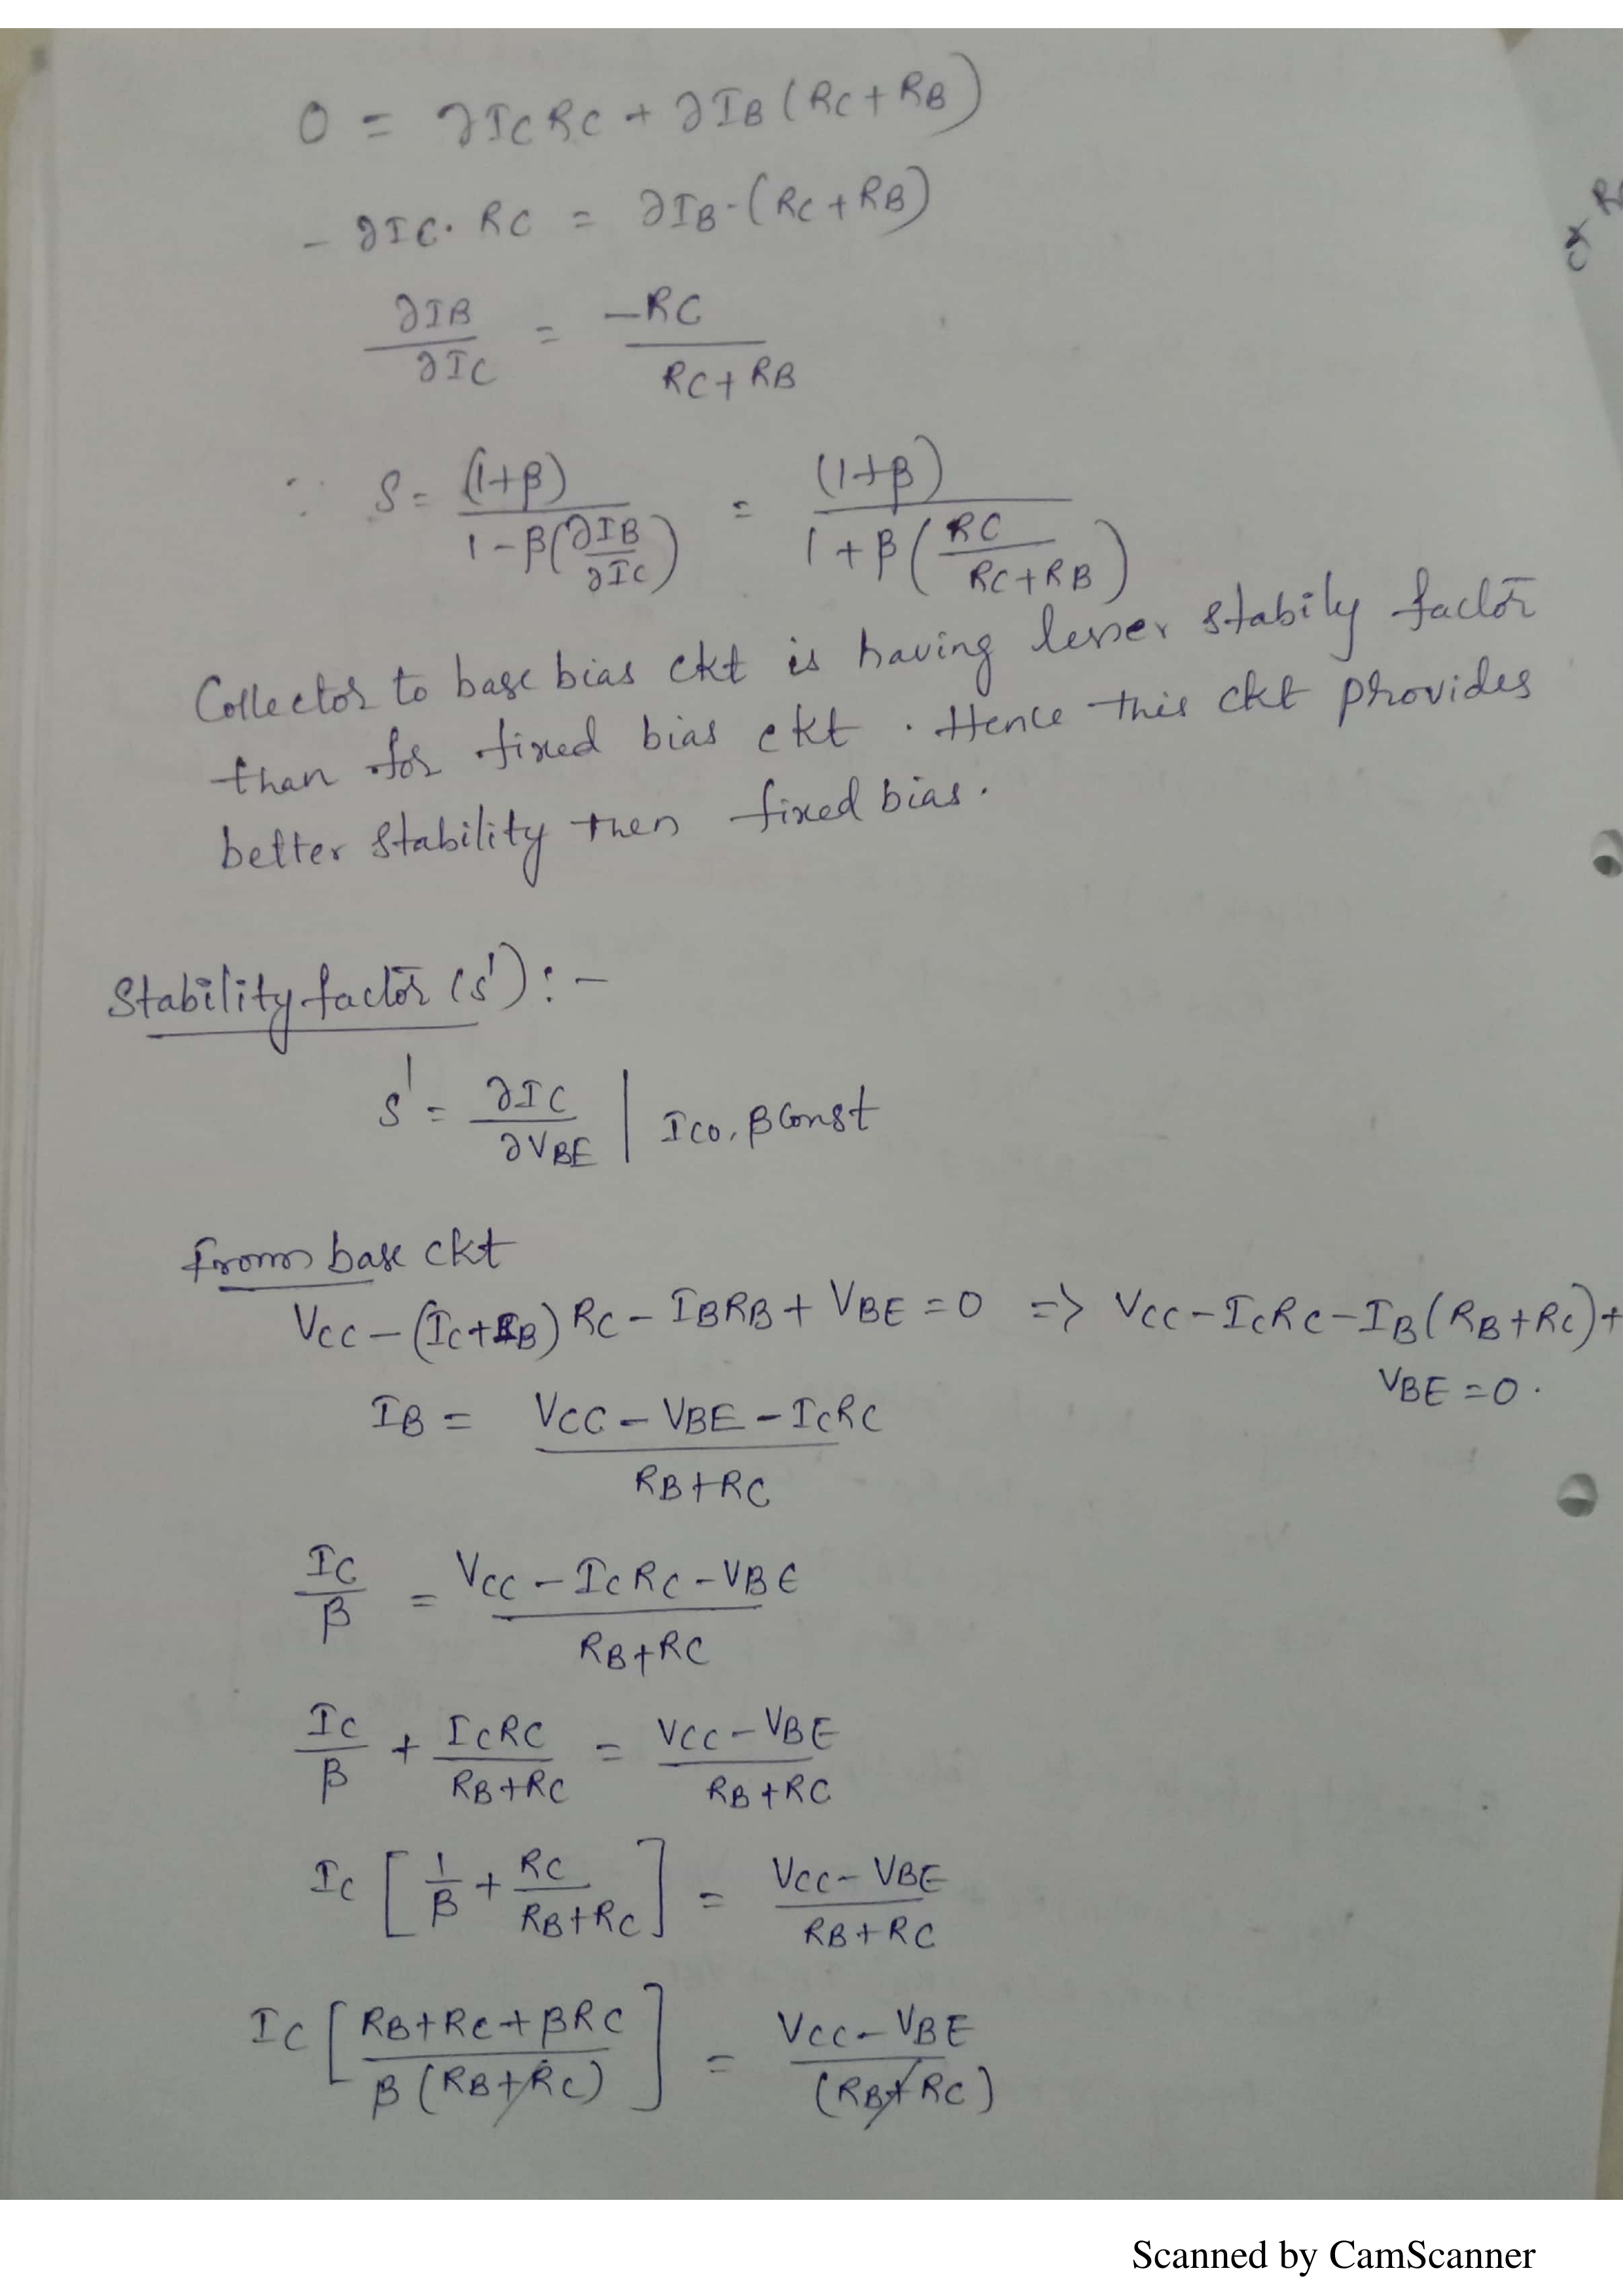 0 = ∂IC RC + ∂IB (RC + RB)
- ∂IC · RC = ∂IB · (RC + RB)
∂IB / ∂IC = -RC / RC + RB
∵ S = (1+β) / 1 - β(∂IB/∂IC) = (1+β) / 1 + β(RC / RC + RB)
Collector to base bias ckt is having lesser stabily factor
than for fixed bias ckt . Hence this ckt provides
better stability then fixed bias.
Stability factor (S') : -
S' = ∂IC / ∂VBE | ICO, β Const
From base ckt
VCC - (IC + IB) RC - IB RB + VBE = 0 => VCC - IC RC - IB (RB + RC) +
VBE = 0 .
IB = VCC - VBE - IC RC / RB + RC
IC / β = VCC - IC RC - VBE / RB + RC
IC / β + IC RC / RB + RC = VCC - VBE / RB + RC
IC [ 1/β + RC / RB + RC ] = VCC - VBE / RB + RC
IC [ RB + RC + β RC / β (RB + RC) ] = VCC - VBE / (RB + RC)
Scanned by CamScanner